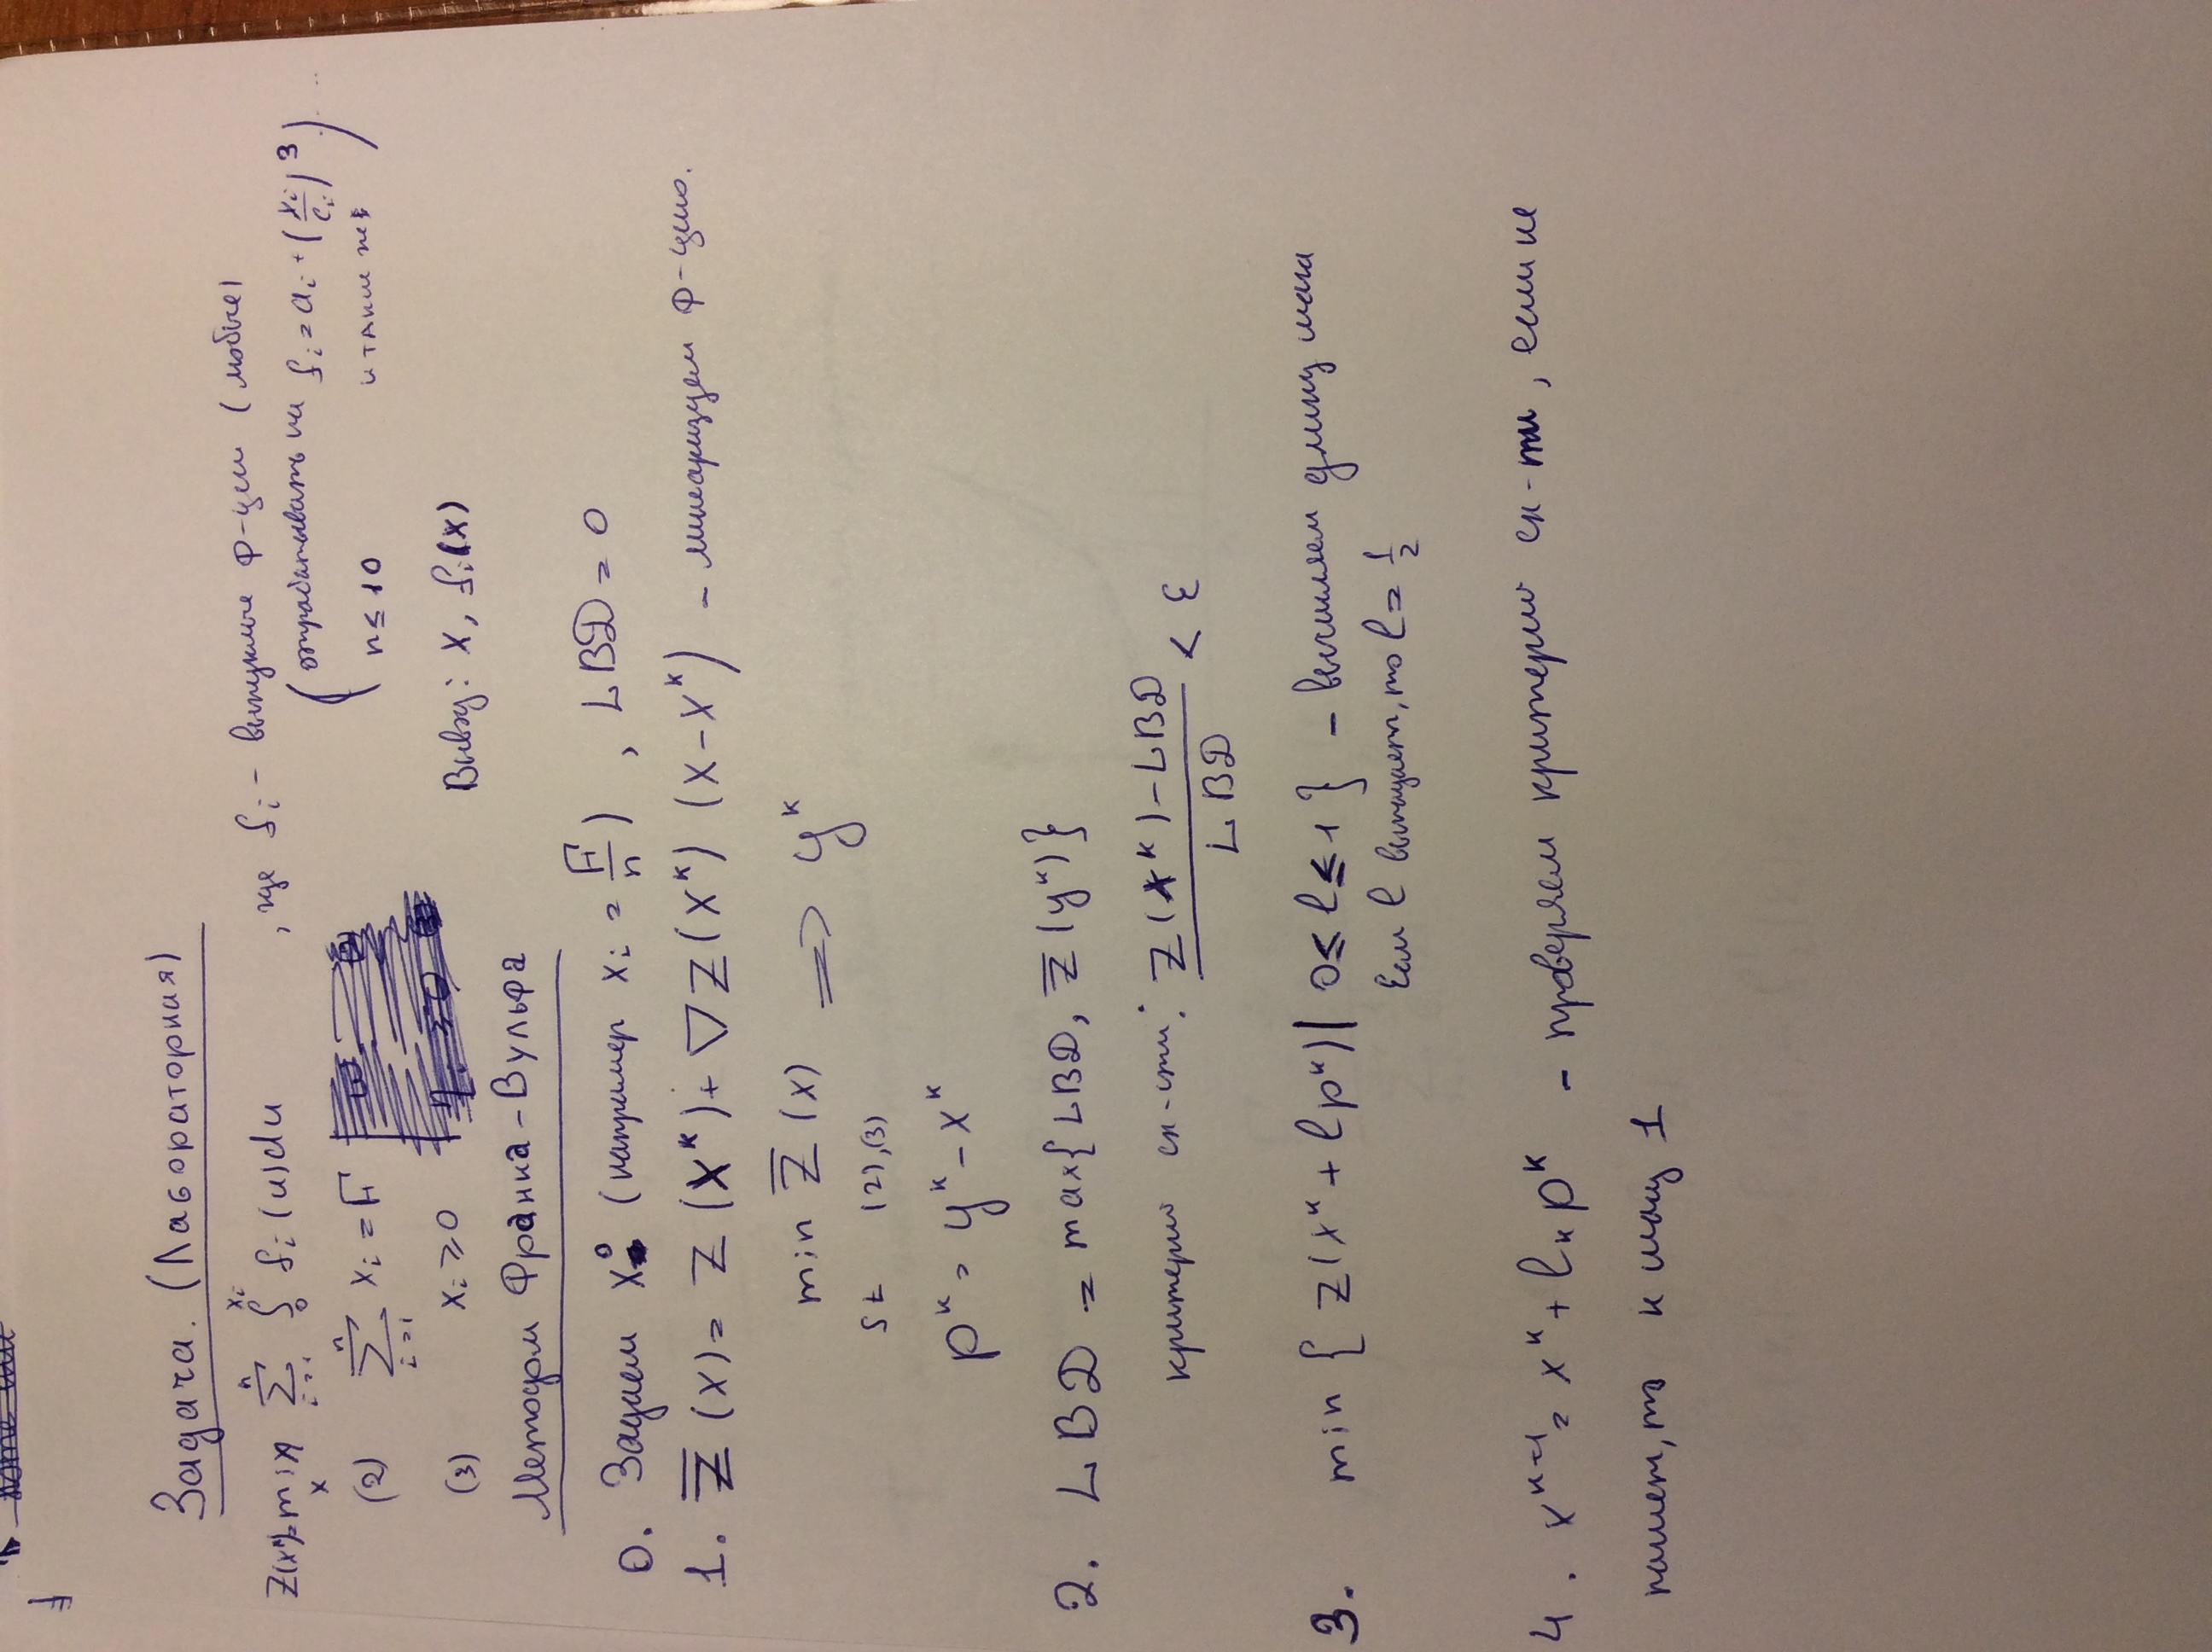 Задача. (Лабораторная)
Z(x)= min_x ∑_{i=1}^{n} ∫_0^{x_i} f_i(u)du , где f_i – выпуклые ф-ции (любые)
(отрабатывать на f_i = a_i + (x_i/c_i)^3)
(2) ∑_{i=1}^{n} x_i = F
n ≤ 10 и такие же
(3) x_i ≥ 0
Вывод: x, f_i(x)
Методом Франка-Вульфа
0. Задаем x^0 (например x_i = F/n) , LBD = 0
1. Z̅(x) = Z(x^k) + ∇Z(x^k) (x-x^k) – линеаризуем ф-цию.
min Z̅(x) ⇒ y^k
st (2),(3)
p^k = y^k – x^k
2. LBD = max{LBD, Z̅(y^k)}
критерий сх-сти: (Z(x^k) – LBD)/LBD < ε
3. min { Z(x^k + lp^k) | 0 ≤ l ≤ 1 } – вычисляем длину шага
Если l вылазит, то l = 1/2
4. x^{k+1} = x^k + l_k p^k – проверяем критерий сх-ти, если не
пашет, то к шагу 1